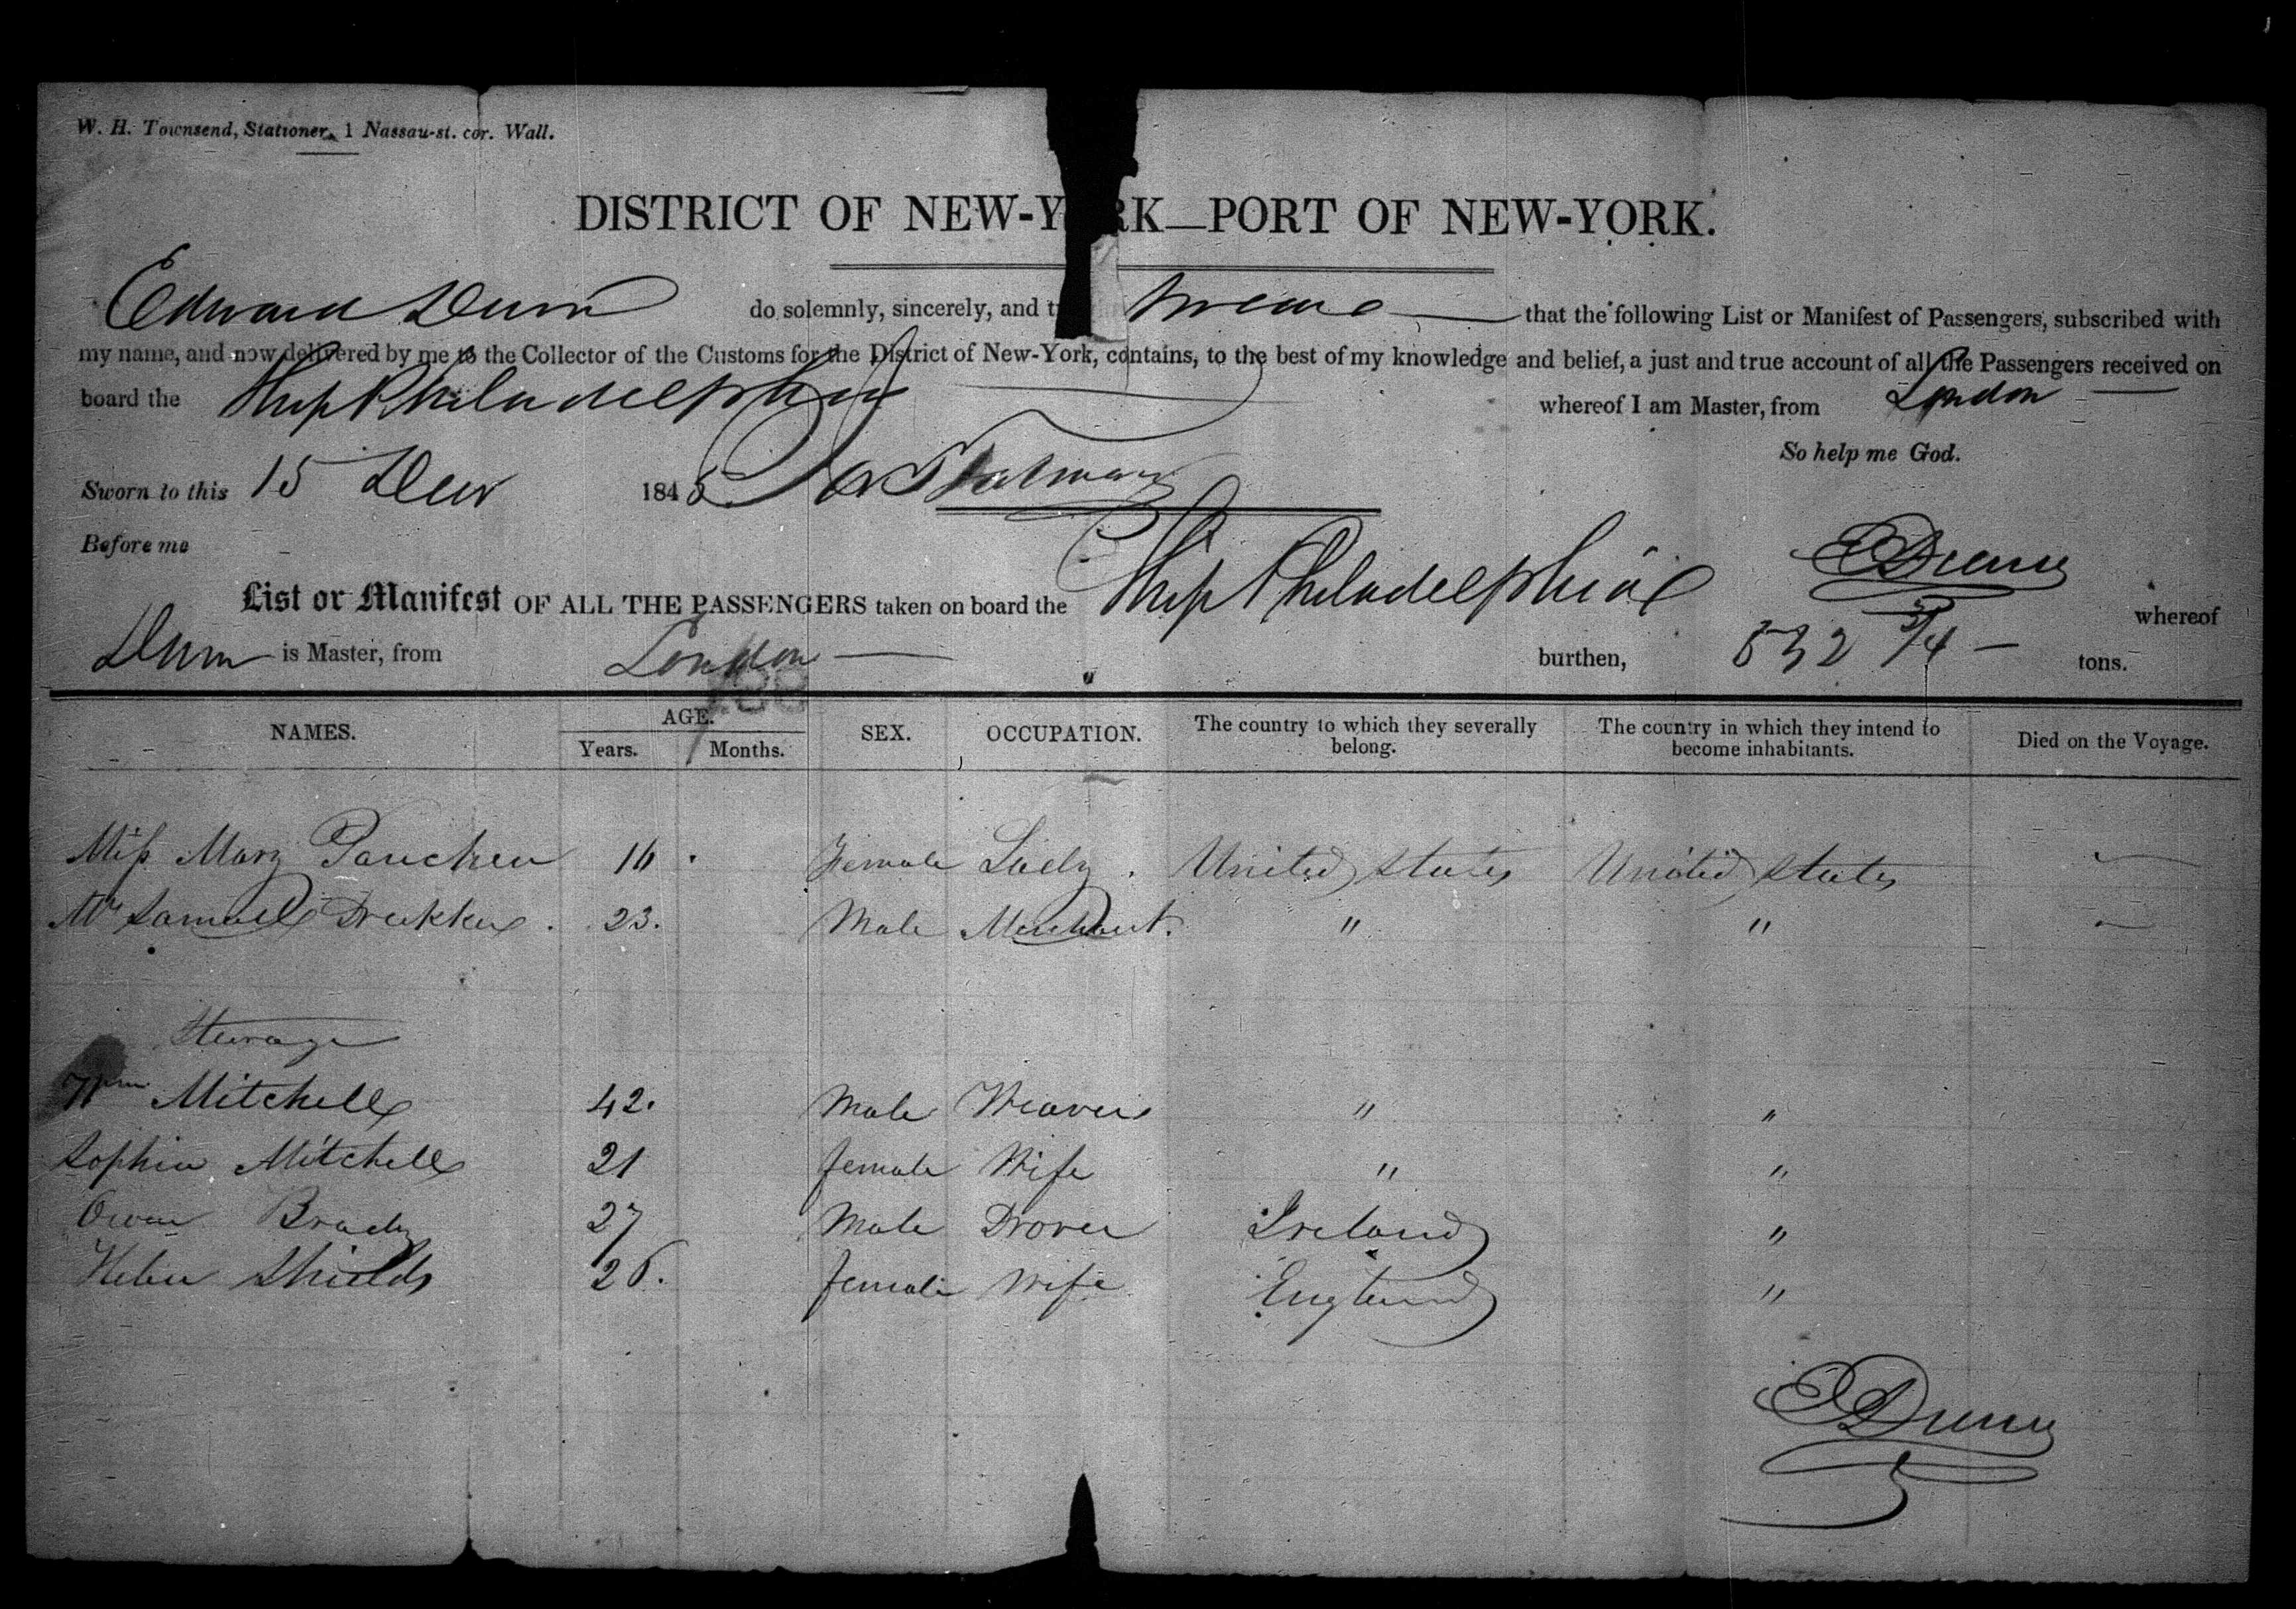 W. H. Townsend, Stationer, 1 Nassau-st. cor. Wall.
DISTRICT OF NEW-Y RK—PORT OF NEW-YORK.
Edward Dunn do solemnly, sincerely, and t swear that the following List or Manifest of Passengers, subscribed with
my name, and now delivered by me to the Collector of the Customs for the District of New-York, contains, to the best of my knowledge and belief, a just and true account of all the Passengers received on
board the Ship Philadelphia whereof I am Master, from London
So help me God.
Sworn to this 15 Decr 1845
Before me
E Dunn
List or Manifest OF ALL THE PASSENGERS taken on board the Ship Philadelphia whereof
Dunn is Master, from London burthen, 532 3/4 tons.
NAMES. AGE. Years. Months. SEX. OCCUPATION. The country to which they severally belong. The country in which they intend to become inhabitants. Died on the Voyage.
Miss Mary 16 Female Lady. United States United States
Mr Samuel Drukker. 23. Male Merchant. " "
Steerage
Wm Mitchell 42. Male Weaver " "
Sophia Mitchell 21 female Wife " "
Owen Brady 27 Male Drover Ireland "
Helen Shields 26. female wife England "
E Dunn